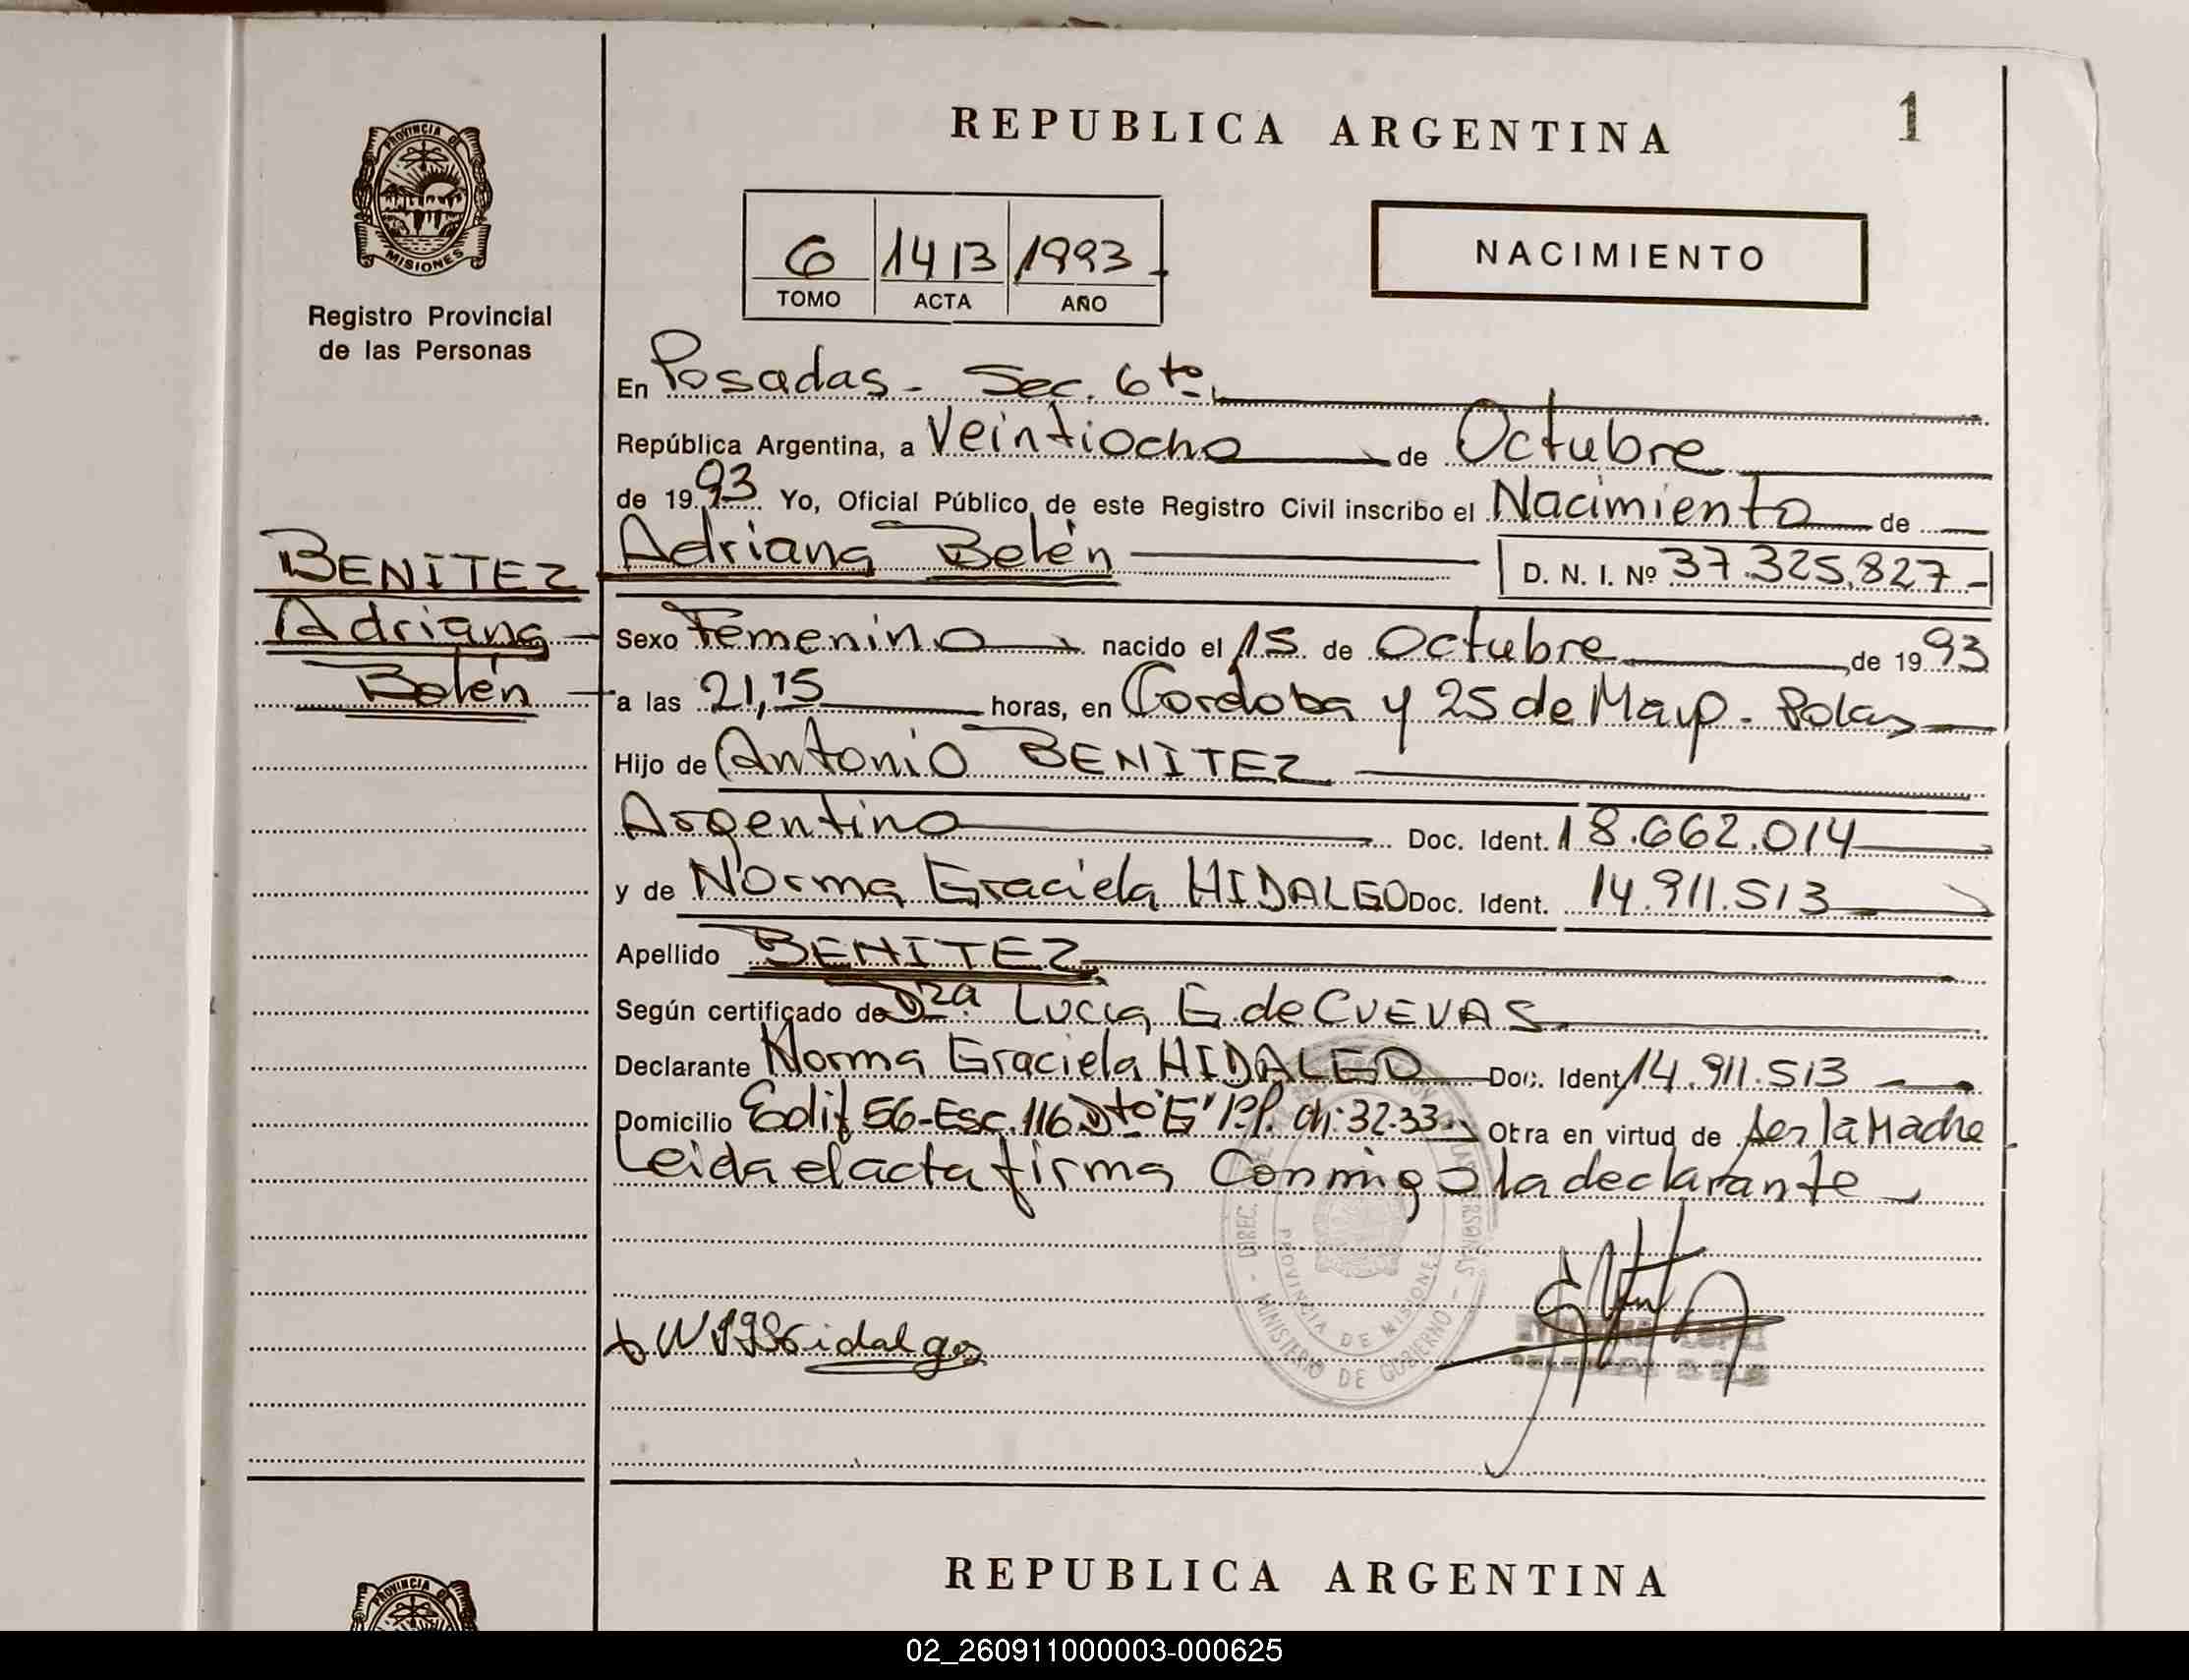 REPUBLICA ARGENTINA
1
PROVINCIA DE
MISIONES
Registro Provincial
de las Personas
6 1413 1993
TOMO ACTA AÑO
NACIMIENTO
En Posadas - Sec. 6ta
República Argentina, a Veintiocho de Octubre
de 1993 Yo, Oficial Público de este Registro Civil inscribo el Nacimiento de
BENITEZ
Adriana
Belén
Adriana Belén D. N. I. Nº 37.325.827-
Sexo Femenino nacido el 15 de Octubre de 1993
a las 21,15 horas, en Cordoba y 25 de Mayo -
Hijo de Antonio BENITEZ
Argentino Doc. Ident. 18.662.014
y de Norma Graciela HIDALGO Doc. Ident. 14.911.513
Apellido BENITEZ
Según certificado de Dra. Lucia G. de CUEVAS
Declarante Norma Graciela HIDALGO Doc. Ident. 14.911.513
Domicilio Edif 56-Esc. 116 Dto "G" Ch. 32-33 Obra en virtud de ser la Madre
Leida el acta firma Conmigo la declarante
PROVINCIA DE MISIONES
MINISTERIO DE GOBIERNO
REPUBLICA ARGENTINA
PROVINCIA
02_260911000003-000625